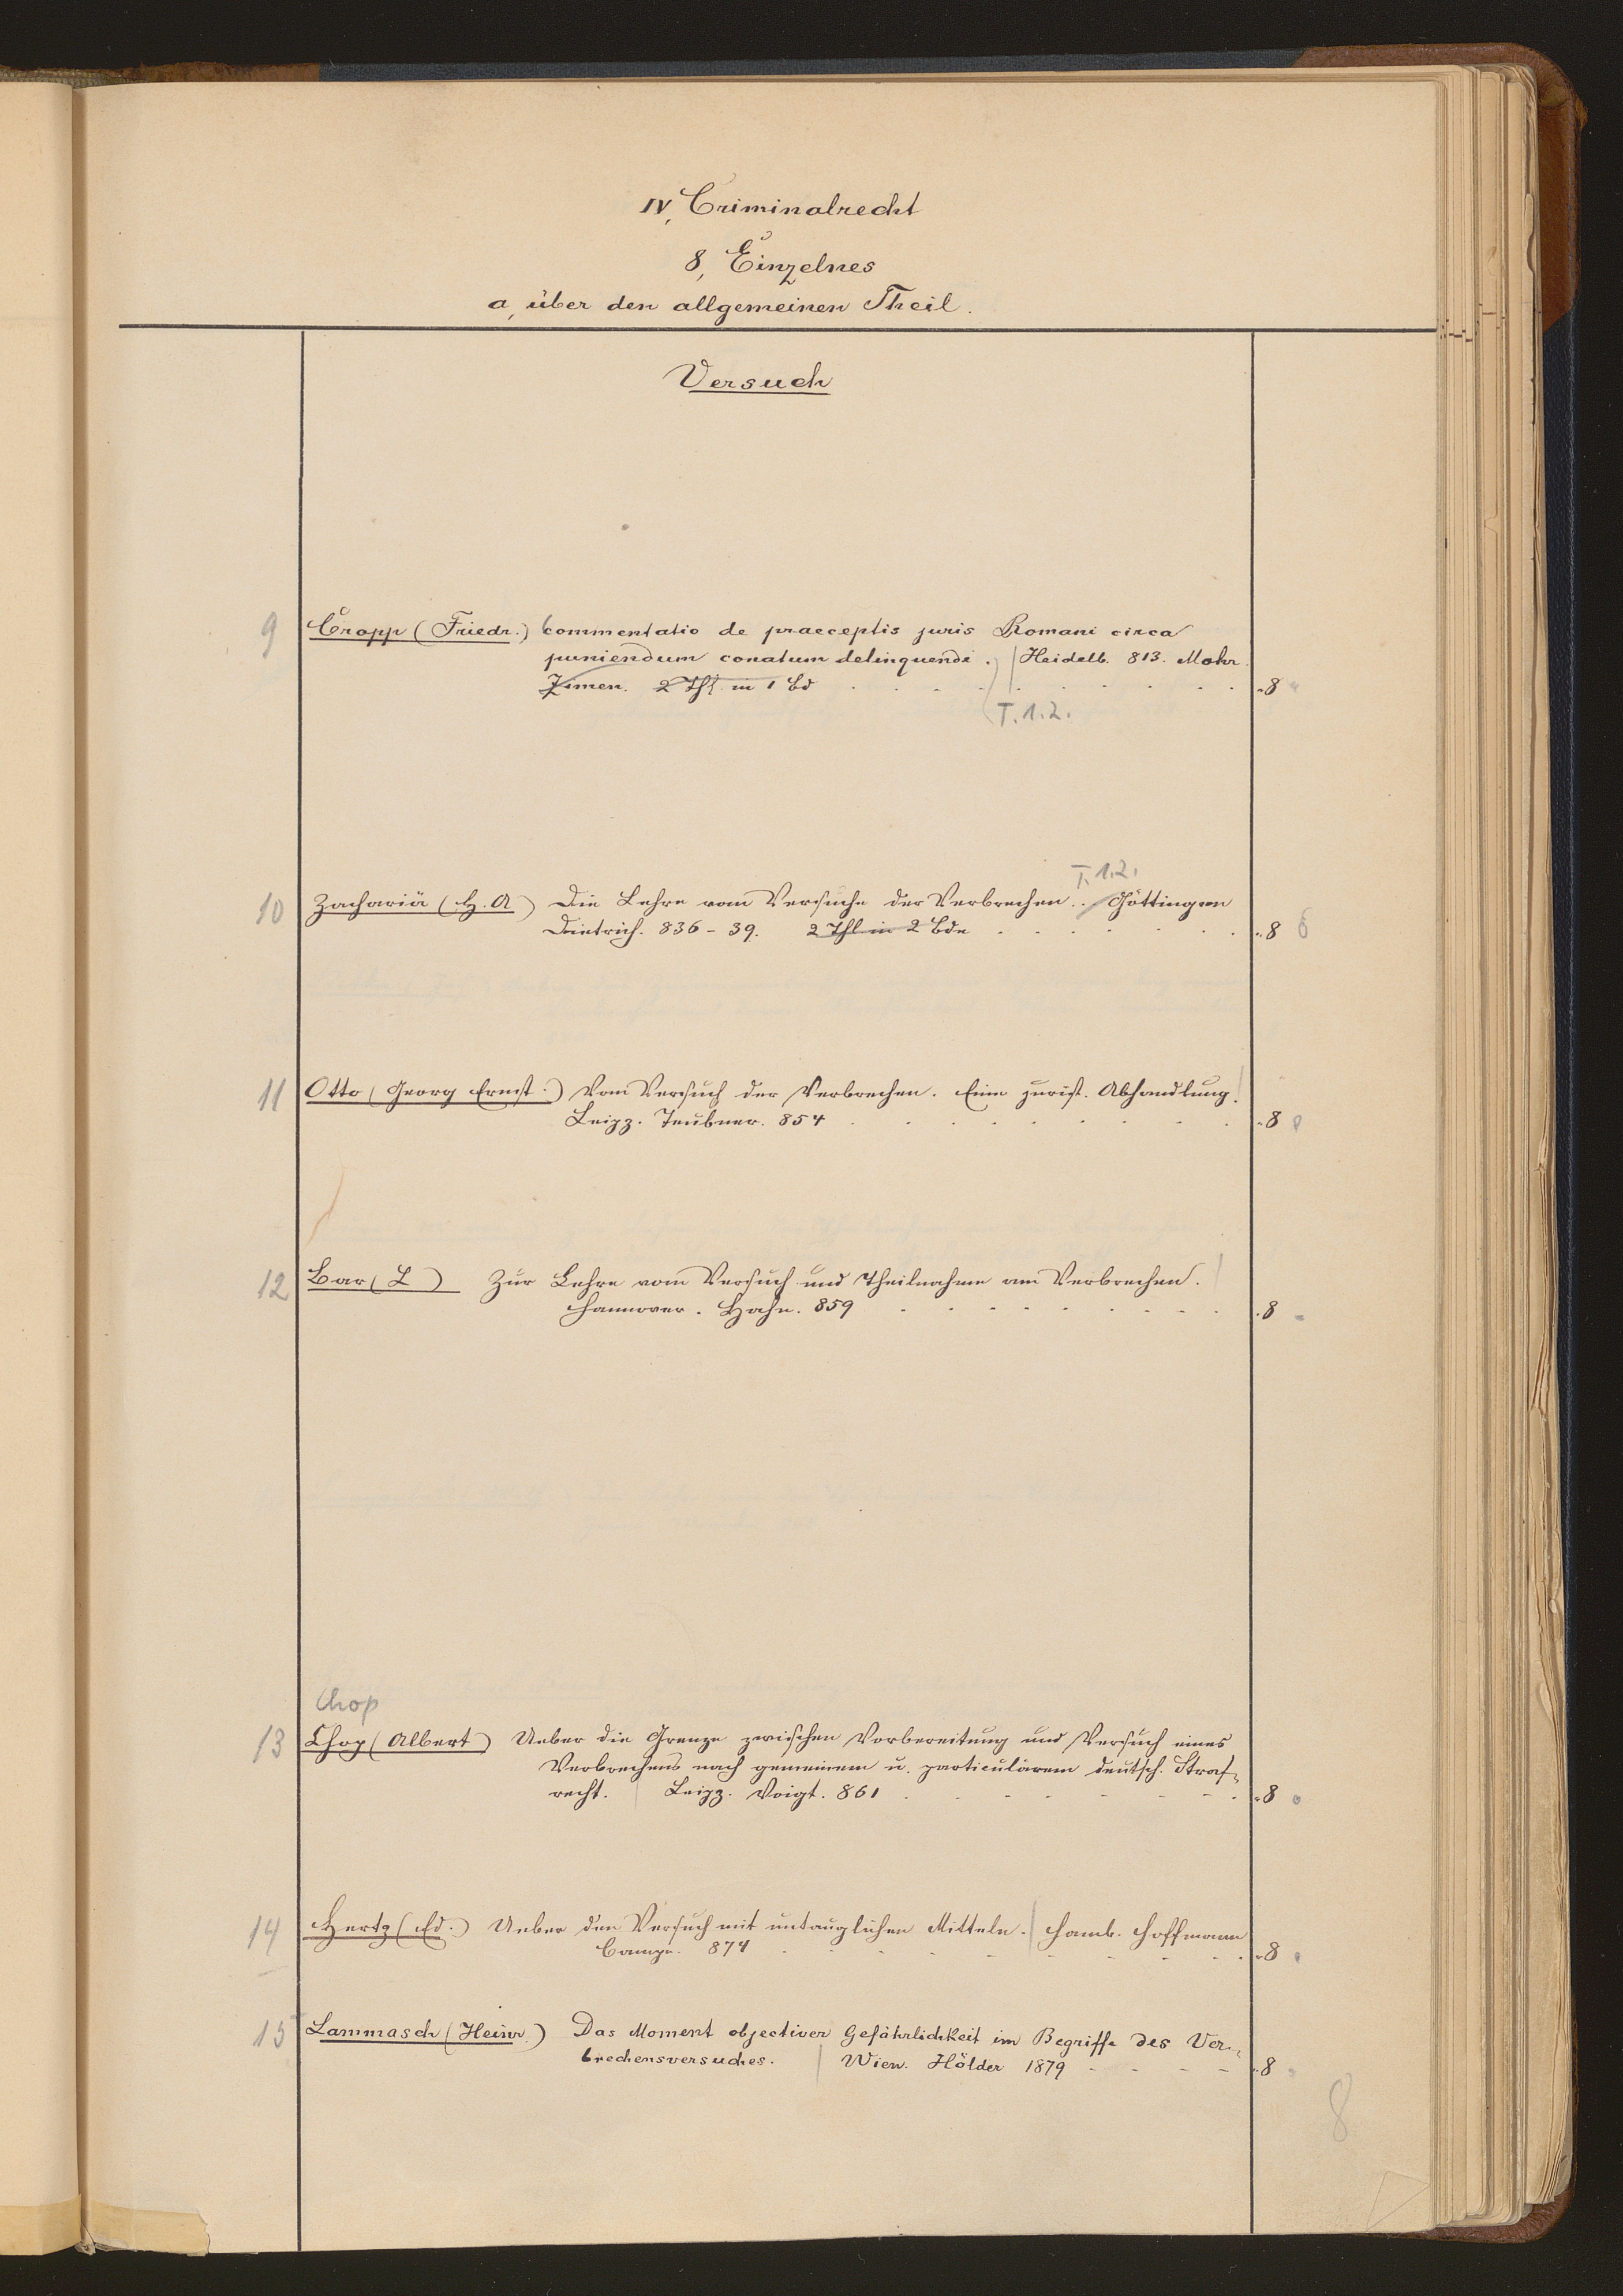 IV, Criminalrecht
8, Einzelnes
a, über den allgemeinen Theil.
Versuch
9 Cropp (Friedr.) Commentatio de praeceptis juris Romani circa
puniendum conatum delinquendi. Heidelb. 813. Mohr.
Zimer. 2 Thl. in 1 Bd . . . . . . . . . 8
T. 1.2.
T. 1.2.
10 Zachariä (H. A) Die Lehre vom Versuche der Verbrechen. . Göttingen
Dietrich. 836 - 39. 2 Thl in 2 Bde . . . . . . 8
11 Otto (Georg Ernst.) Vom Versuch der Verbrechen. Eine jurist. Abhandlung.
Leipz. Teubner. 854 . . . . . . . . . 8
12 Bar (L) Zur Lehre vom Versuch und Theilnahme am Verbrechen.
Hannover. Hahn. 859 . . . . . . . . 8
Chop
13 Chop (Albert) Ueber die Grenze zwischen Vorbereitung und Versuch eines
Verbrechens nach gemeinem u. particulärem deutsch. Straf-
recht. Leipz. Voigt. 861 . . . . . . . 8
14 Hertz (Ed.) Ueber den Versuch mit untauglichen Mitteln. Hamb. Hoffmann
Campe. 874 . . . . . . . . . 8
15 Lammasch (Heinr.) Das Moment objectiver Gefährlichkeit im Begriffe des Ver-
brechensversuches. Wien. Hölder 1879 - - - - 8
8